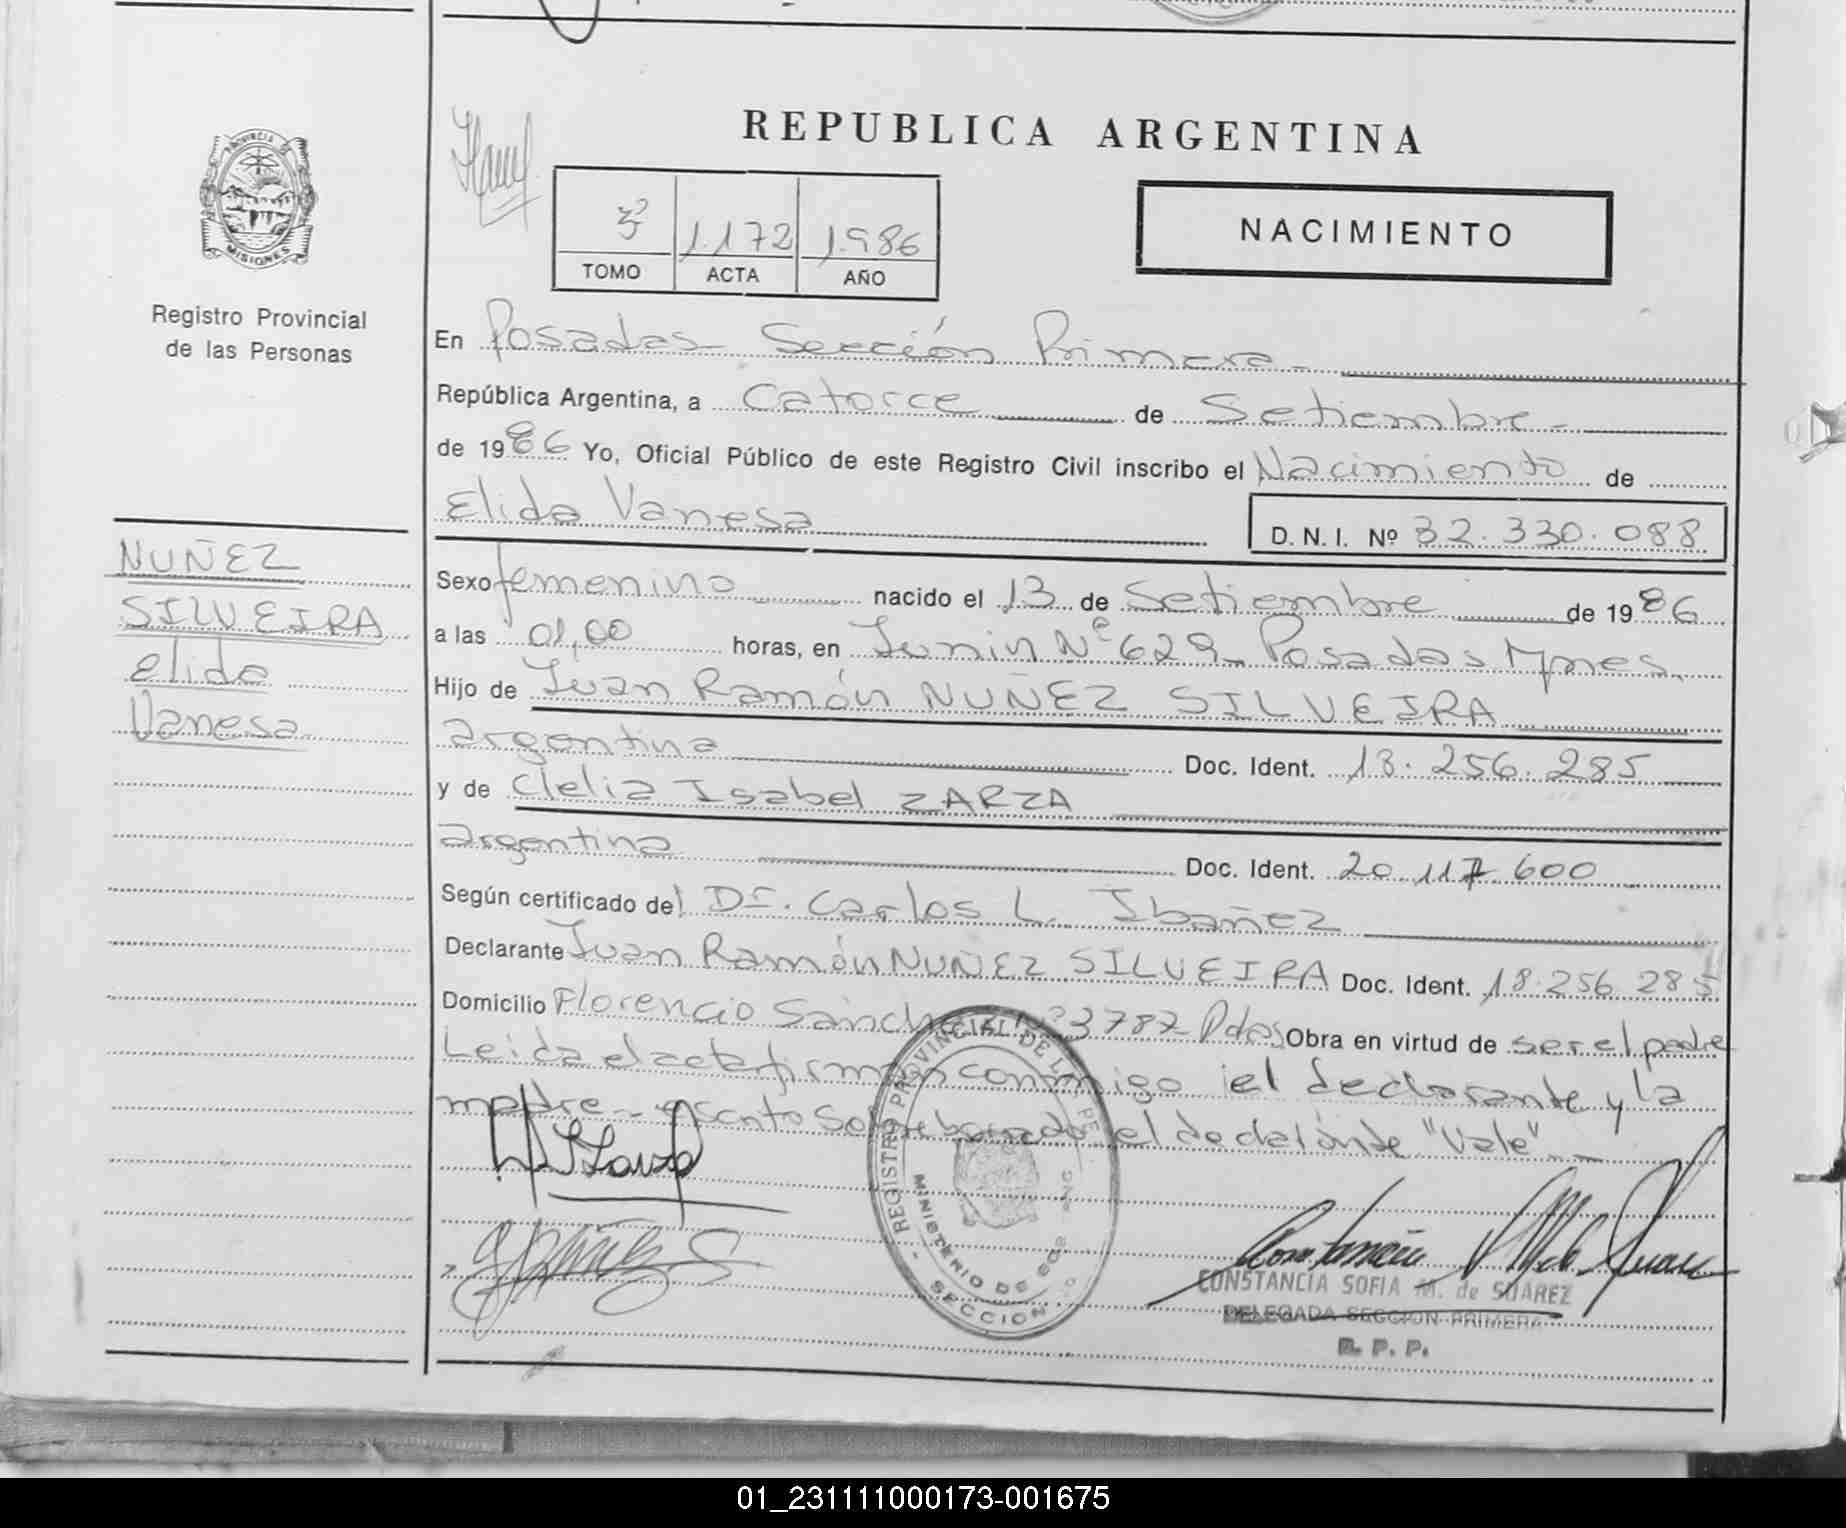 REPUBLICA ARGENTINA
PROVINCIA DE
MISIONES
Registro Provincial
de las Personas
3º 1.172 1.986
TOMO ACTA AÑO
NACIMIENTO
En Posadas Sección Primera
República Argentina, a Catorce de Setiembre
de 1986 Yo, Oficial Público de este Registro Civil inscribo el Nacimiento de
Elida Vanesa D.N.I. Nº 32.330.088
NUÑEZ
SILVEIRA
Elida
Vanesa
Sexo femenino nacido el 13 de Setiembre de 1986
a las 01,00 horas, en Junin Nº 629 Posadas Mnes.
Hijo de Juan Ramón NUÑEZ SILVEIRA
argentina Doc. Ident. 18.256.285
y de Clelia Isabel ZARZA
argentina Doc. Ident. 20.117.600
Según certificado del Dr. Carlos L. Ibañez
Declarante Juan Ramón NUÑEZ SILVEIRA Doc. Ident. 18.256.285
Domicilio Florencio Sánchez Nº 3787 Pdas Obra en virtud de ser el padre
Leida el acta firman conmigo el declarante y la
madre - escrito sobre borrado el declarante "Vale". -
REGISTRO PROVINCIAL DE LAS PE
MINISTERIO DE GOB
SECCION
CONSTANCIA SOFIA M. de SUAREZ
DELEGADA SECCION PRIMERA
R. P. P.
01_231111000173-001675